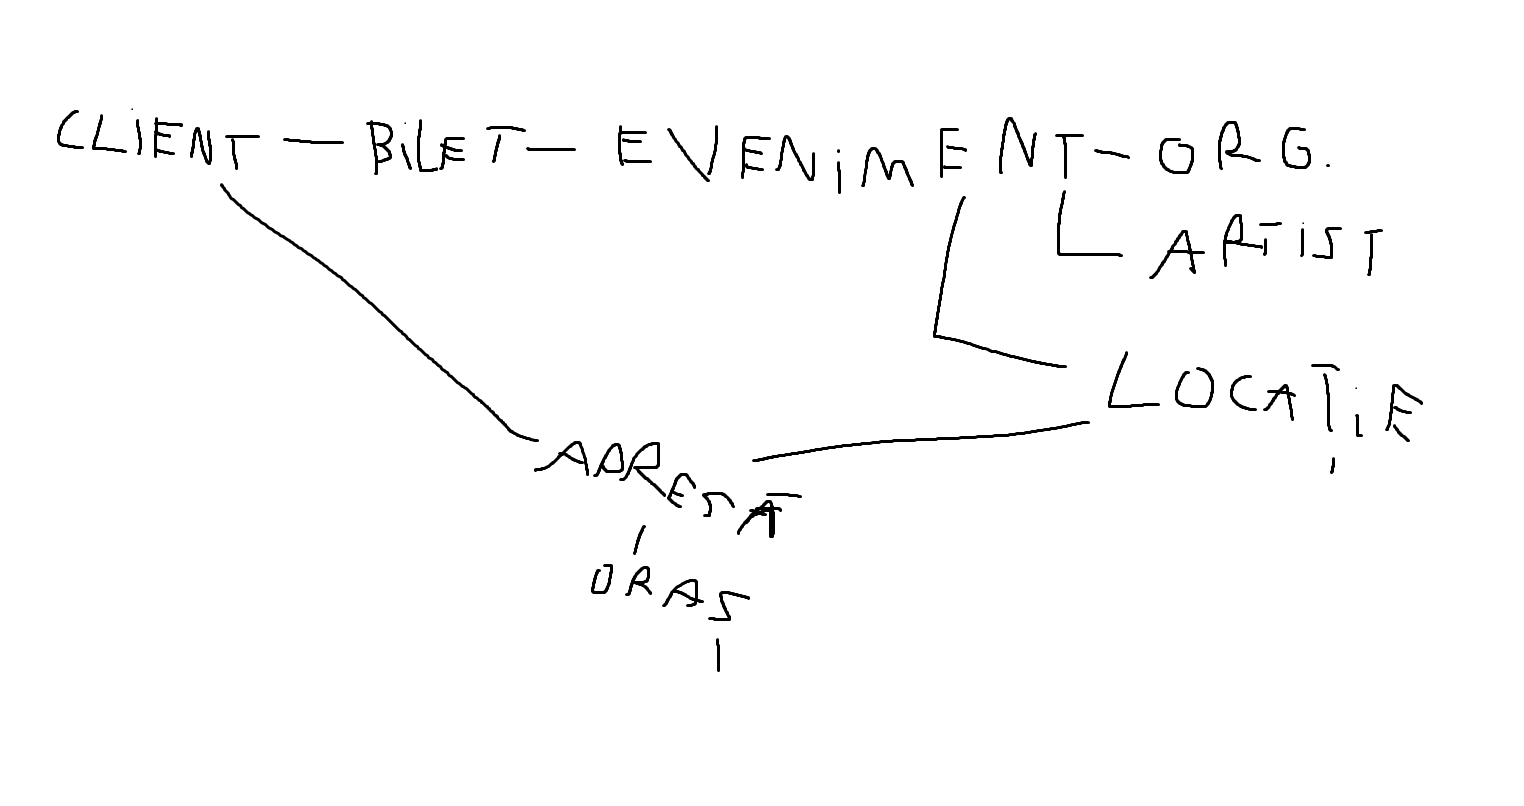 CLIENT — BILET — EVENIMENT — ORG.
ARTIST
LOCAȚIE
ADRESA
ORAȘ